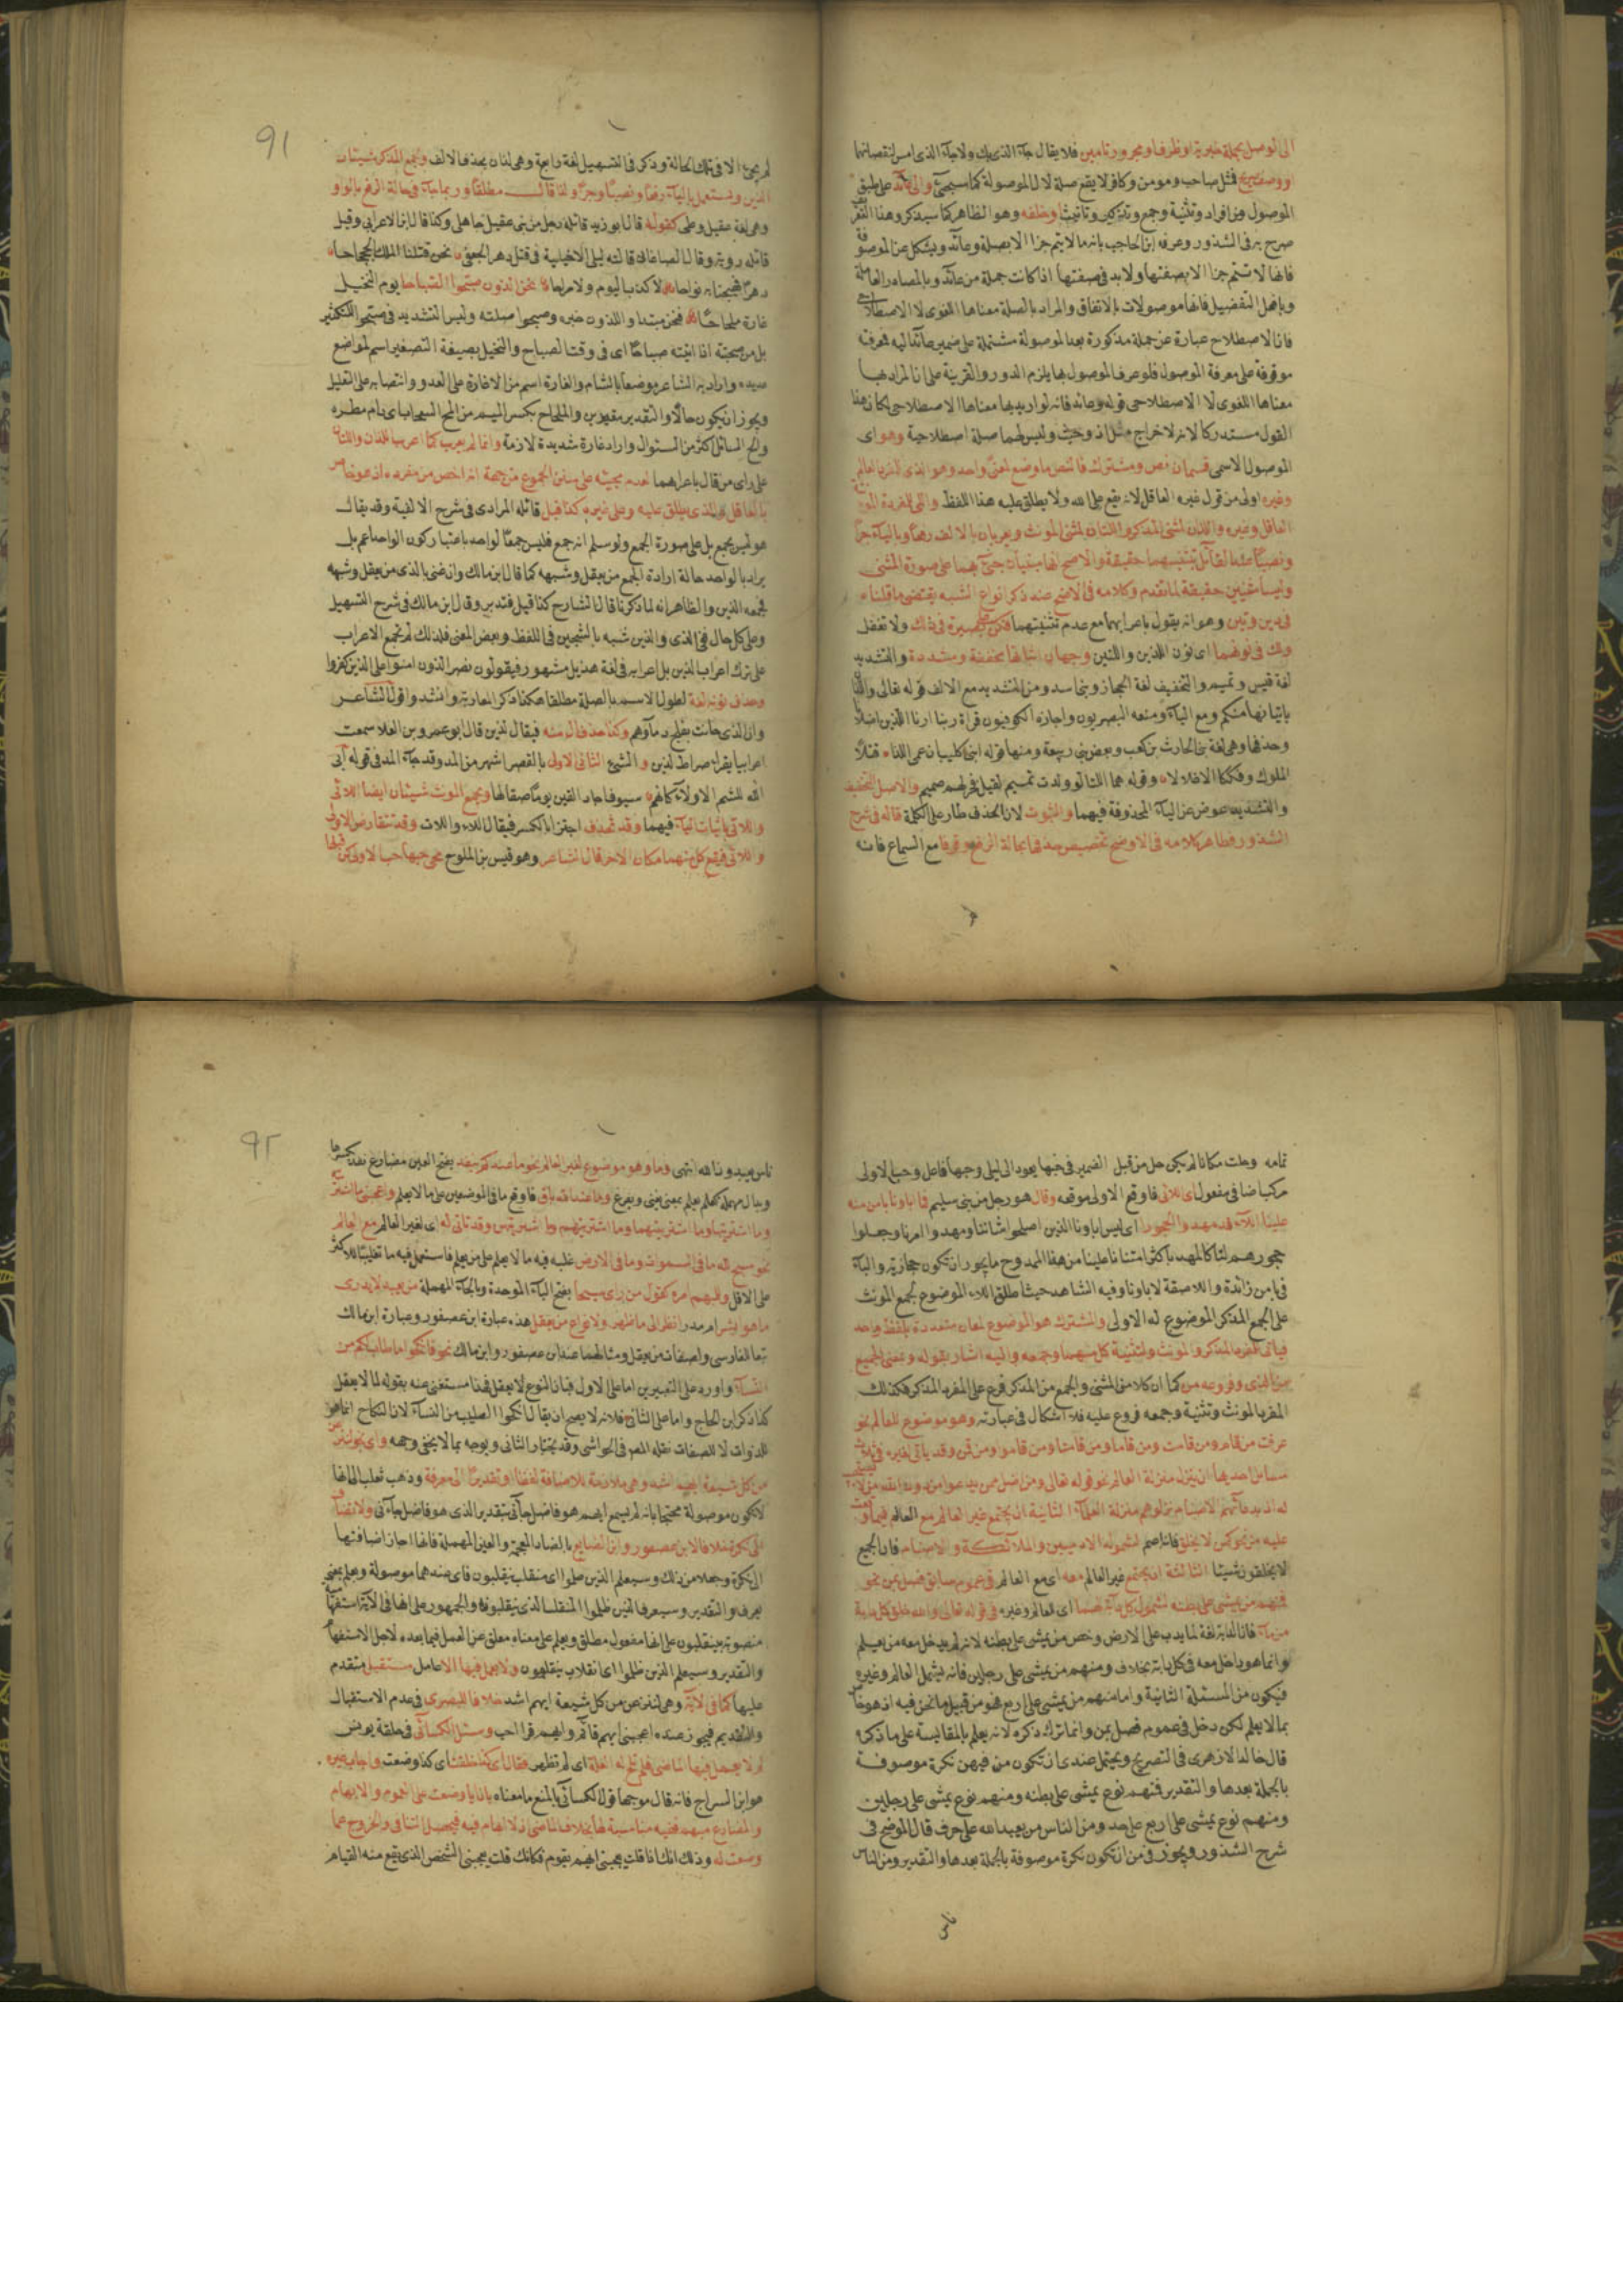 الى الوصل بجملة خبرية او ظرف او مجرور تامين فلا يقال جاء الذى بك ولا جاء الذى امس لنقصانهما
او وصف صريح فمثل صاحب ومومن وكافر لا يقع صلة لال الموصولة كما سيجئ والى عائد على طبق
الموصول من افراد وتثنية وجمع وتذكير وتانيث او خلفه وهو الظاهر كما سيذكر وهذا
صرح به فى الشذور وعرفه ابن الحاجب بانه ما لا يتم جزا الا بصلة وعائد ويشكل عن الموصوفة
فانها لا تتم جزا الا بصفتها ولا بد فى صفتها اذا كانت جملة من عائد وبالمصادر العاملة
وبافعل التفضيل فانها موصولات بالاتفاق والمراد بالصلة معناها اللغوى لا الاصطلاحى
فان الاصطلاح عبارة عن جملة مذكورة بعد الموصولة مشتملة على ضمير عائد اليه فمعرفته
موقوفة على معرفة الموصول فلو عرف الموصول بها يلزم الدور والقرينة على ان المراد بها
معناها اللغوى لا الاصطلاحى قوله وعائد فانه لو اريد بها معناها الاصطلاحى لكان هذا
القول مستدركا لانه لاخراج مثل اذ وحيث وليس لهما صلة اصطلاحية وهو اى
الموصول الاسمى قسمان نص ومشترك فالنص ما وضع لمعنى واحد وهو الذى للمفرد العالم
وغيره اولى من قول غيره العاقل لانه يقع على الله ولا يطلق عليه هذا اللفظ والتى للمفردة
العاقل وغيره واللذان لمثنى المذكر واللتان لمثنى المونث ويعربان بالالف رفعا وبالياء جرا
ونصبا عند القائل بتثنيتهما حقيقة والاصح انها مبنيان جئ بهما على صورة المثنى
وليسا مثنيين حقيقة لما تقدم وكلامه فى الاوضح عند ذكر انواع الشبه يقتضى ما قلناه
فى ذين وتين وهو انه يقول باعرابهما مع عدم تثنيتهما فكن على بصيرة فى ذلك ولا تغفل
ولك فى نونهما اى نون اللذين واللتين وجهان اثباتها مخففة ومشددة والتشديد
لغة قيس وتميم والتخفيف لغة الحجاز وبنى اسد ومن التشديد مع الالف قوله تعالى واللذان
ياتيانها منكم ومع الياء ومنعه البصريون واجازه الكوفيون قراة ربنا ارنا اللذين اضلانا
وحذفها وهى لغة بنى الحارث بن كعب وبعض بنى ربيعة ومنها قوله ابنى كليب ان عمى اللذا قتلا
الملوك وفككا الاغلالا وقوله هما اللتا لو ولدت تميم لقيل فخر لهم صميم والاصل التخفيف
والتشديد عوض عن الياء المحذوفة فيهما والثبوت لان الحذف طار على الكلمة قاله فى شرح
الشذور فظاهر كلامه فى الاوضح تخصيص حذفها بحالة الرفع وقوفا مع السماع فانه
لم يجئ الا فى تلك الحالة وذكر فى التسهيل لغة رابعة وهى لذان بحذف الالف ولجمع المذكر شيئان
الذين ويستعمل بالياء رفعا ونصبا وجرا ولذا قال مطلقا وربما جاء فى حالة الرفع بالواو
وهى لغة عقيل وطى كقوله قال ابو زيد قائله رجل من بنى عقيل جاهلى وكذا قال ابن الاعرابى وقيل
قائله روبة وقال الصاغانى قالته ليلى الاخيلية فى قتل دهر الجعفى نحن قتلنا الملك الجحجاحا
دهرا فهيجنا به نواحا لا كذب اليوم ولا مراحا نحن الذون صبحوا الصباحا يوم النخيل
غارة ملحاحا فنحن مبتدا واللذون خبره وصبحوا صلته وليس التشديد فى صبحوا للتكثير
بل من صبحته اذا اتيته صباحا اى فى وقت الصباح والنخيل بصيغة التصغير اسم لمواضع
عديده واراد به الشاعر موضعا بالشام والغارة اسم من الاغارة على العدو وانتصابه على التعليل
ويجوز ان يكون حالا والتقدير مغيرين والملحاح بكسر الميم من الح السحاب اى دام مطره
والح السائل اكثر من السئوال واراد غارة شديدة لازمة وانما لم يعرب كما اعرب اللذان واللتان
على راى من قال باعرابهما لعدم مجيئه على سنن الجموع من جهة انه اخص من مفرده اذ هو خاص
بالعاقل والذى يطلق عليه وعلى غيره كذا قيل قائله المرادى فى شرح الالفية وقد يقال
هو ليس بجمع بل على صورة الجمع ولو سلم انه جمع فليس جمعا لواحد باعتبار كون الواحد اعم بل
يراد بالواحد حالة ارادة الجمع من يعقل وشبهه كما قال ابن مالك وان غنى بالذى من يعقل وشبهه
فجمعه الذين والظاهر انه لما ذكرنا قال الشارح كذا قيل فتدبر وقال ابن مالك فى شرح التسهيل
وعلى كل حال ففى الذى والذين شبه بالشجين فى اللفظ وبعض المعنى فلذلك لم تجمع الاعراب
على ترك اعراب الذين بل اعرابه فى لغة هذيل مشهور فيقولون نصر الذون امنوا على الذين كفروا
وحذف نونه لغة لطول الاسم بالصلة مطلقا هكذا ذكر المغاربة وانشدوا قول الشاعر
وان الذى حانت بفلج دماؤهم وكذا حذف ال منه فيقال لذين قال ابو عمرو بن العلا سمعت
اعرابيا يقرا صراط لذين والشئ الثانى الاولى بالقصر اشهر من المد وقد جاء المد فى قوله ابى
الله للشم الاولاء كانهم سيوف اجاد القين يوما صقالها ولجمع المونث شيئان ايضا اللائى
واللاتى باثبات الياء فيهما وقد تحذف اجتزا بالكسر فيقال اللاء واللات وقد تتقارض الاولى
واللائى فيقع كل منهما مكان الاخر قال الشاعر وهو قيس بن الملوح محى حبها حب الاولى كن قبلها
تمامه وحلت مكانا لم يكن حل من قبل الضمير فى حبها يعود الى ليلى وحبها فاعل وحب الاولى
مركبا اضافى مفعول اى اللائى فاوقع الاولى موقعه وقال هو رجل من بنى سليم فما اباونا بامن منه
علينا اللاء قد مهدوا الحجورا اى ليس اباونا الذين اصلحوا شاننا ومهدوا امرنا وجعلوا
حجورهم لنا كالمهد باكثر امتنانا علينا من هذا الممدوح ما يجوز ان تكون حجازية والباء
فى بامن زائدة واللا صفة لاباونا وفيه الشاهد حيث اطلق اللاء الموضوع لجمع المونث
على الجمع المذكر الموضوع له الاولى والمشترك هو الموضوع لمعان متعددة بلفظ واحد
فياتى للمفرد المذكر والمونث ولتثنية كل منهما وجمعه واليه اشار بقوله وبمعنى الجميع
من الذى وفروعه من كما ان كلا من المثنى والجمع من المذكر فرع على المفرد المذكر فكذلك
المفرد المونث وتثنية وجمعه فروع عليه فلا اشكال فى عبارته وهو موضوع للعالم نحو
عرفت من قام ومن قامت ومن قاما ومن قامتا ومن قاموا ومن قمن وقد ياتى لغيره فى ثلاث
مسائل احديها ان ينزل منزلة العالم نحو قوله تعالى ومن اضل ممن يدعوا من دون الله من لا يستجيب
له اذ بدعائهم الاصنام نزلوهم منزلة العلماء الثانية ان يجتمع غير العالم مع العالم فيما وقعت
عليه من نحو كمن لا يخلق فانه اعم لشموله الادميين والملائكة والاصنام فان الجميع
لا يخلقون شيئا الثالثة ان يجتمع غير العالم معه اى مع العالم فى عموم سابق فصل بمن نحو
فمنهم من يمشى على بطنه لشمول كل دابة لهما اى العالم وغيره فى قوله تعالى والله خلق كل دابة
من ماء فان الدابة لغة لما يدب على الارض وخص من يمشى على بطنه لانه لم يدخل معه من يعلم
وانما هو داخل معه فى كل دابة بخلاف ومنهم من يمشى على رجلين فانه يشمل العالم وغيره
فيكون من المسئلة الثانية واما منهم من يمشى على اربع فهو من قبيل ما نحن فيه اذ هو خاص
بما لا يعلم لكن دخل فى عموم فصل بمن وانما ترك ذكره لانه يعلم بالمقايسة على ما ذكره
قال خالد الازهرى فى التصريح ويحتمل عندى ان تكون من فيهن نكرة موصوفة
بالجملة بعدها والتقدير فمنهم نوع يمشى على بطنه ومنهم نوع يمشى على رجلين
ومنهم نوع يمشى على اربع على حد ومن الناس من يعبد الله على حرف قال الموضح فى
شرح الشذور ويجوز فى من ان تكون نكرة موصوفة بالجملة بعدها والتقدير ومن الناس
ناس
ناس يعبدون الله انتهى وما وهو موضوع لغير العالم نحو ما عندكم ينفد بفتح العين مضارع نفد بكسرها
وبدال مهملة كعلم يعلم بمعنى يفنى ويفرغ وما عند الله باق فاوقع ما فى الموضعين على ما لا يعلم واعجبنى ما اشتريته
وما اشتريتها وما اشتريتهما وما اشتريتهم وما اشتريتهن وقد تاتى له اى لغير العالم مع العالم
نحو سبح لله ما فى السموات وما فى الارض غلب فيه ما لا يعلم على من يعلم فاستعمل فيه ما تغليبا للاكثر
على الاقل ولمبهم امره كقول من راى سبحا بفتح الباء الموحدة وبالحاء المهملة من بعيد لا يدرى
ما هو ابشر ام مدر انظر الى ما ظهر ولانواع من يعقل هذه عبارة ابن عصفور وعبارة ابن مالك
تبعا للفارسى ولصفات من يعقل ومثالهما عند ابن عصفور وابن مالك نحو فانكحوا ما طاب لكم من
النساء واورد على التعبيرين اما على الاول فبان النوع لا يعقل فهذا مستغنى عنه بقوله لما لا يعقل
كذا ذكر ابن الحاج واما على الثانى فلانه لا يصح ان يقال انكحوا الطيب من النساء لان النكاح انما هو
للذوات لا للصفات نقله المص فى الحواشى وقد يختار الثانى ويوجه بما لا يخفى وجهه واى نحو لننزعن
من كل شيعة ايهم اشد وهى ملازمة للاضافة لفظا او تقديرا الى معرفة وذهب ثعلب الى انها
لا تكون موصولة محتجا بانه لم يسمع ايهم هو فاضل جاءنى بتقدير الذى هو فاضل جاءنى ولا تضاف
الى نكرة خلافا لابن عصفور وابن الضايع بالضاد المعجمة والعين المهملة فانهما اجازا اضافتها
الى نكرة وجعلا من ذلك وسيعلم الذين ظلموا اى منقلب ينقلبون فاى عندهما موصولة ويعلم بمعنى
يعرف والتقدير وسيعرف الذين ظلموا المنقلب الذى ينقلبونه والجمهور على انها فى الاية استفهامية
منصوبة بينقلبون على انها مفعول مطلق ويعلم على معناه معلق عن العمل فيما بعده لاجل الاستفهام
والتقدير وسيعلم الذين ظلموا اى انقلاب ينقلبون ولا يعمل فيها الا عامل مستقبل متقدم
عليها كما فى الاية وهى لننزعن من كل شيعة ايهم اشد خلافا للبصرى فى عدم الاستقبال
والتقديم فيجوز عنده اعجبنى ايهم قائم وايهم قرا احب وسئل الكسائى فى حلقة يونس
لم لا يعمل فيها الماضى فلم تلح له العلة اى لم تظهر فقال اى كذا خلقت اى كذا وضعت واجاب غيره
هو ابن السراج فانه قال موجها قول الكسائى بالمنع ما معناه بان ايا وضعت على العموم والابهام
والمضارع مبهم ففيه مناسبة لها بخلاف الماضى اذ لا ابهام فيه فيحصل التنافى والخروج عما
وضعت له وذلك انك اذا قلت يعجبنى ايهم يقوم فكانك قلت يعجبنى الشخص الذى يقع منه القيام